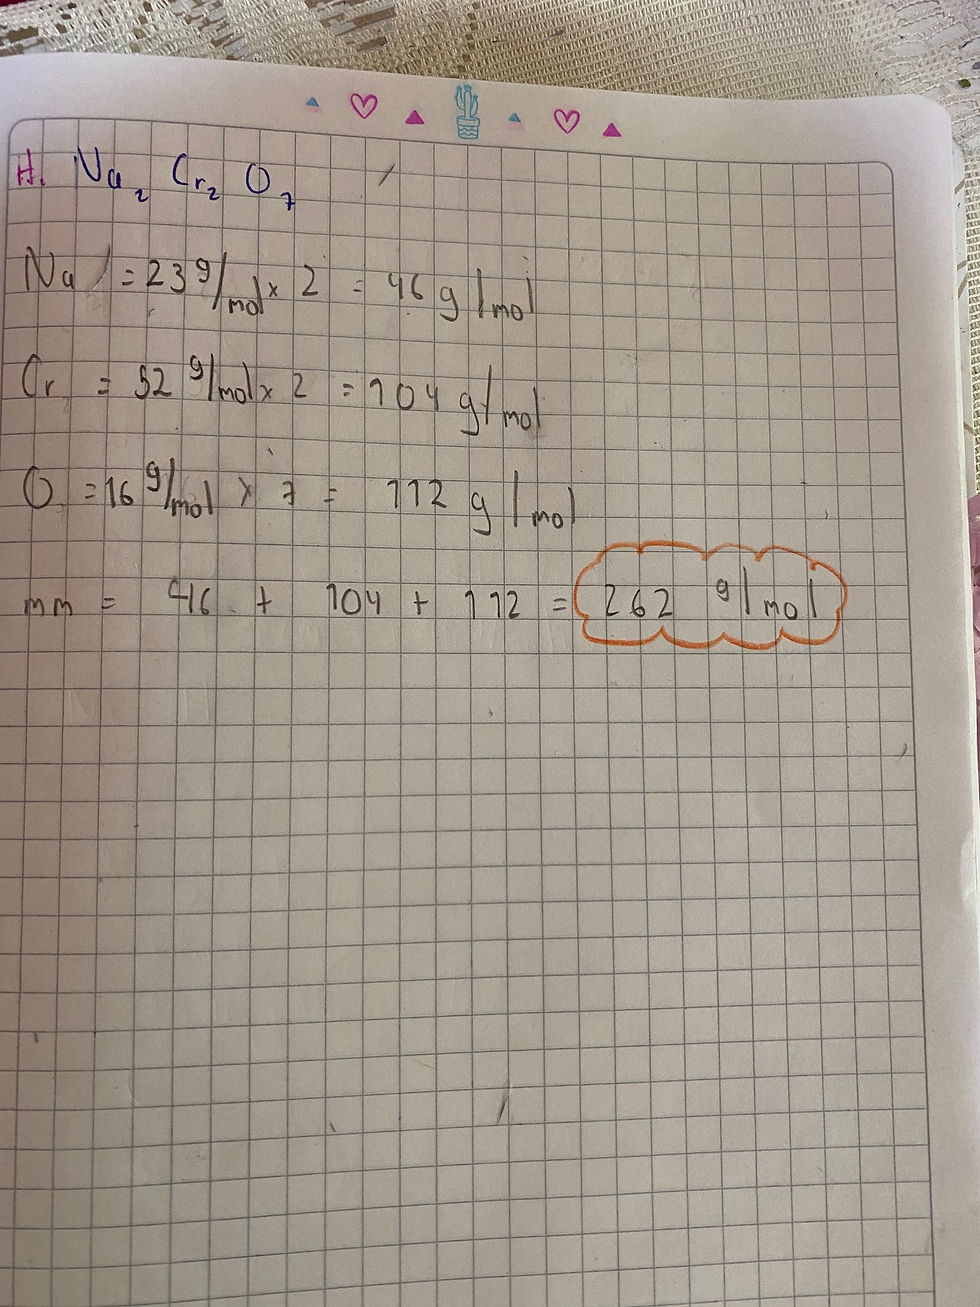 H. Na₂ Cr₂ O₇
Na = 23 g/mol x 2 = 46 g/mol
Cr = 52 g/mol x 2 = 104 g/mol
O = 16 g/mol x 7 = 112 g/mol
mm = 46 + 104 + 112 = 262 g/mol